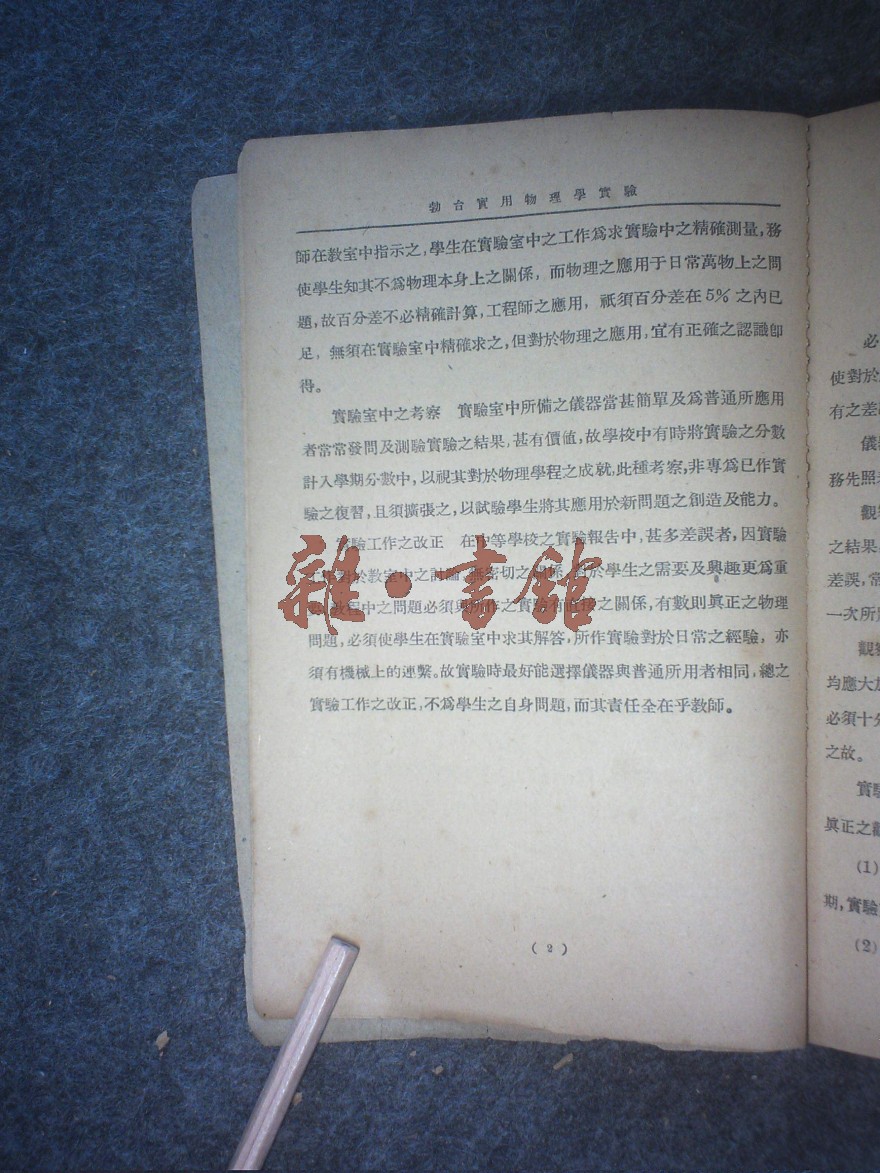 勃台實用物理學實驗
師在教室中指示之,學生在實驗室中之工作爲求實驗中之精確測量,務
使學生知其不爲物理本身上之關係,而物理之應用于日常萬物上之問
題,故百分差不必精確計算,工程師之應用,祇須百分差在5%之內已
足,無須在實驗室中精確求之,但對於物理之應用,宜有正確之認識卽
得。
實驗室中之考察 實驗室中所備之儀器當甚簡單及爲普通所應用
者常常發問及測驗實驗之結果,甚有價値,故學校中有時將實驗之分數
計入學期分數中,以視其對於物理學程之成就,此種考察,非專爲已作實
驗之復習,且須擴張之,以試驗學生將其應用於新問題之創造及能力。
實驗工作之改正 在中等學校之實驗報告中,甚多差誤者,因實驗
工作對於教室中之討論無密切之關係,對於學生之需要及興趣更爲重
教程中之問題必須與所作之實驗有直接之關係,有數則眞正之物理
問題,必須使學生在實驗室中求其解答,所作實驗對於日常之經驗,亦
須有機械上的連繫。故實驗時最好能選擇儀器與普通所用者相同,總之
實驗工作之改正,不爲學生之自身問題,而其責任全在乎教師。
(2)
雜·書館
必
使對於
有之差
儀
務先照
觀
之結果
差誤,常
一次所
觀
均應大
必須十分
之故。
實驗
眞正之觀
(1)
期,實驗
(2)